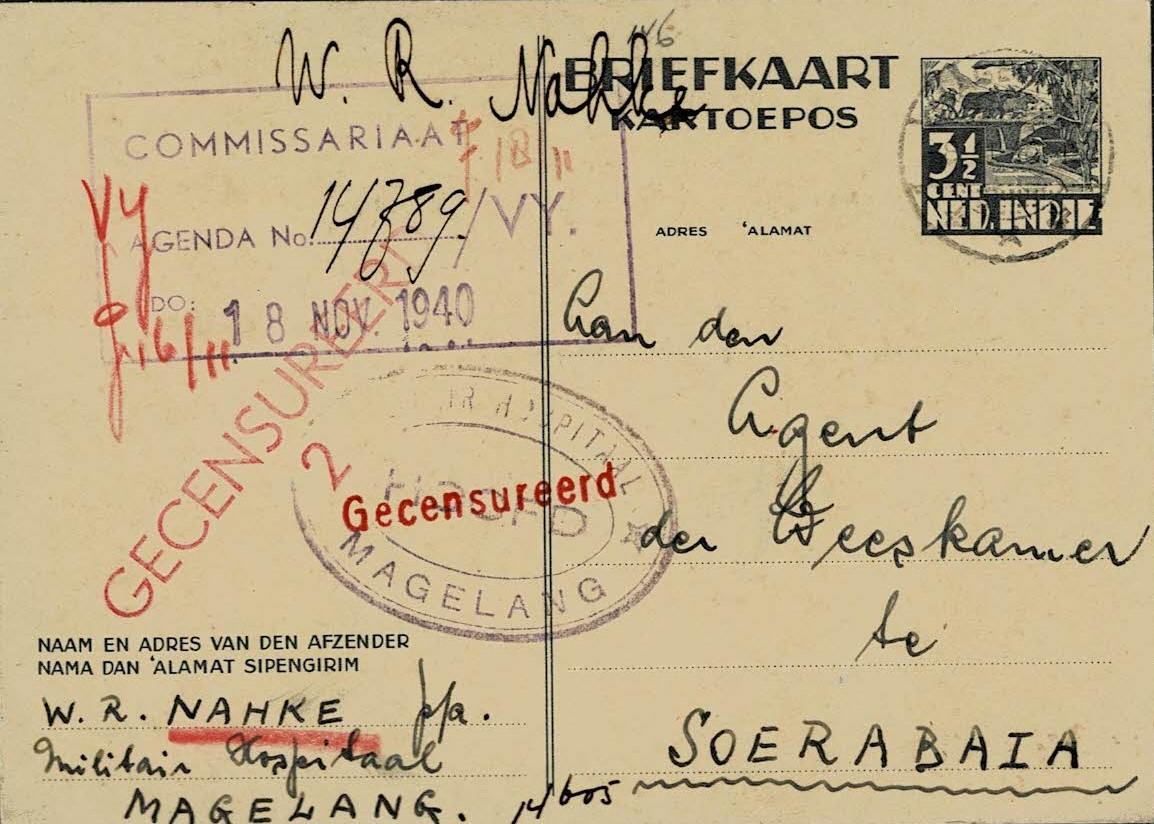 W. R. Nahke
146
BRIEFKAART
KARTOEPOS
COMMISSARIAAT
18/11
Vy
AGENDA No. 14789/VY.
DO: 18 NOV. 1940
16/11
GECENSUREERD
2
3½
CENT
NED. INDIË
ADRES 'ALAMAT
Aan den
Agent
der Weeskamer
te
SOERABAIA
HOSPITAAL
HOOFD
MAGELANG
Gecensureerd
NAAM EN ADRES VAN DEN AFZENDER
NAMA DAN 'ALAMAT SIPENGIRIM
W. R. NAHKE p/a.
Militair Hospitaal
MAGELANG.